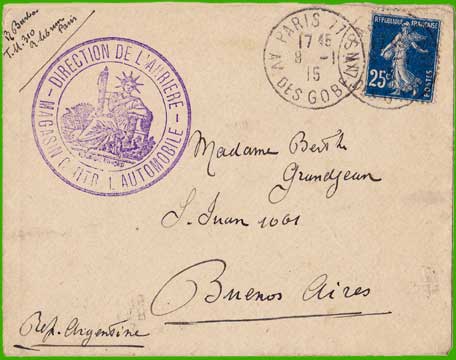 T.M. 310
Paris
DIRECTION DE L'ARRIÈRE
MAGASIN C. TR. 1. AUTOMOBILE
PARIS
17 45
8 -11
15
AV. DES GOBELINS
REPUBLIQUE FRANÇAISE
25c
POSTES
Madame Berthe
Grandjean
S. Juan 1061
Buenos Aires
Rep. Argentine